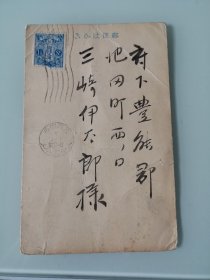 郵便はかき
府下豊能郡
池田町西ノ口
三崎伊太郎様